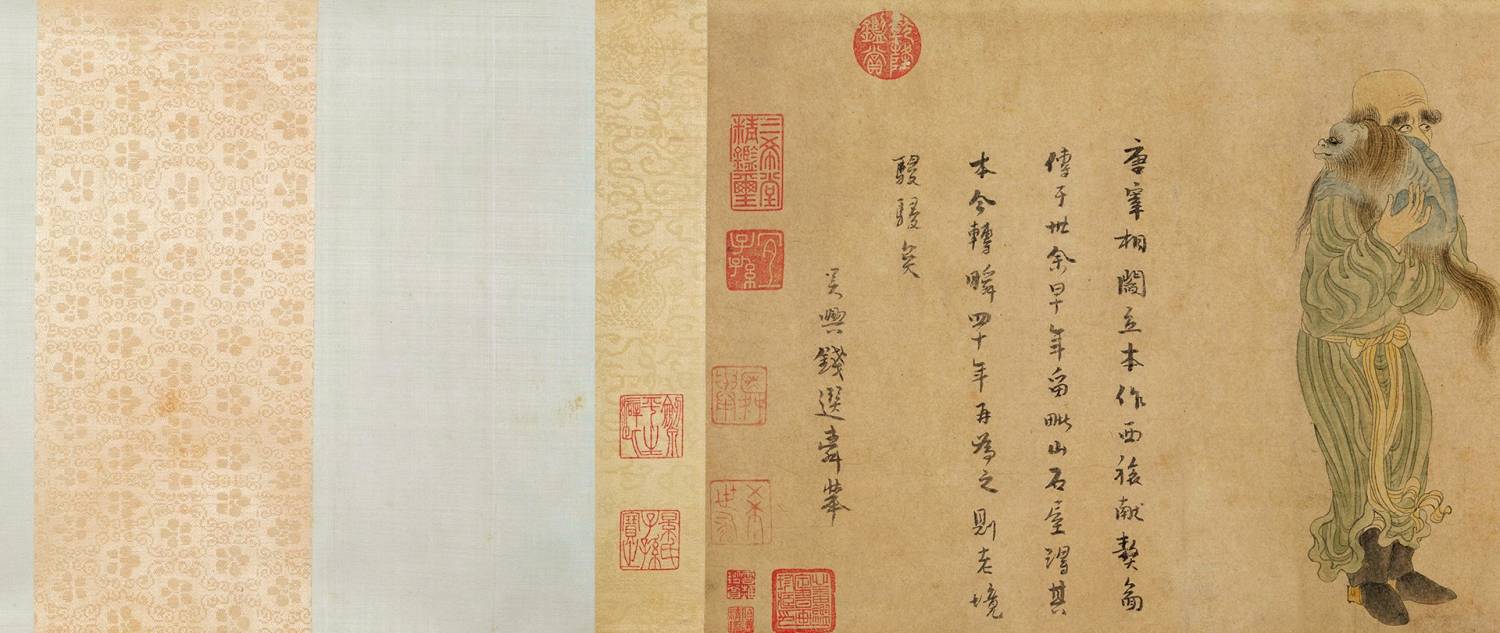 唐宰相閻立本作西旅獻獒圖
傳于世余早年留毗山石屋得其
本今轉瞬四十年再為之則老境
駸駸矣
吳興錢選舜舉
乾隆鑑賞
三希堂精鑑璽
宜子孫
希世有
景氏子孫寶之